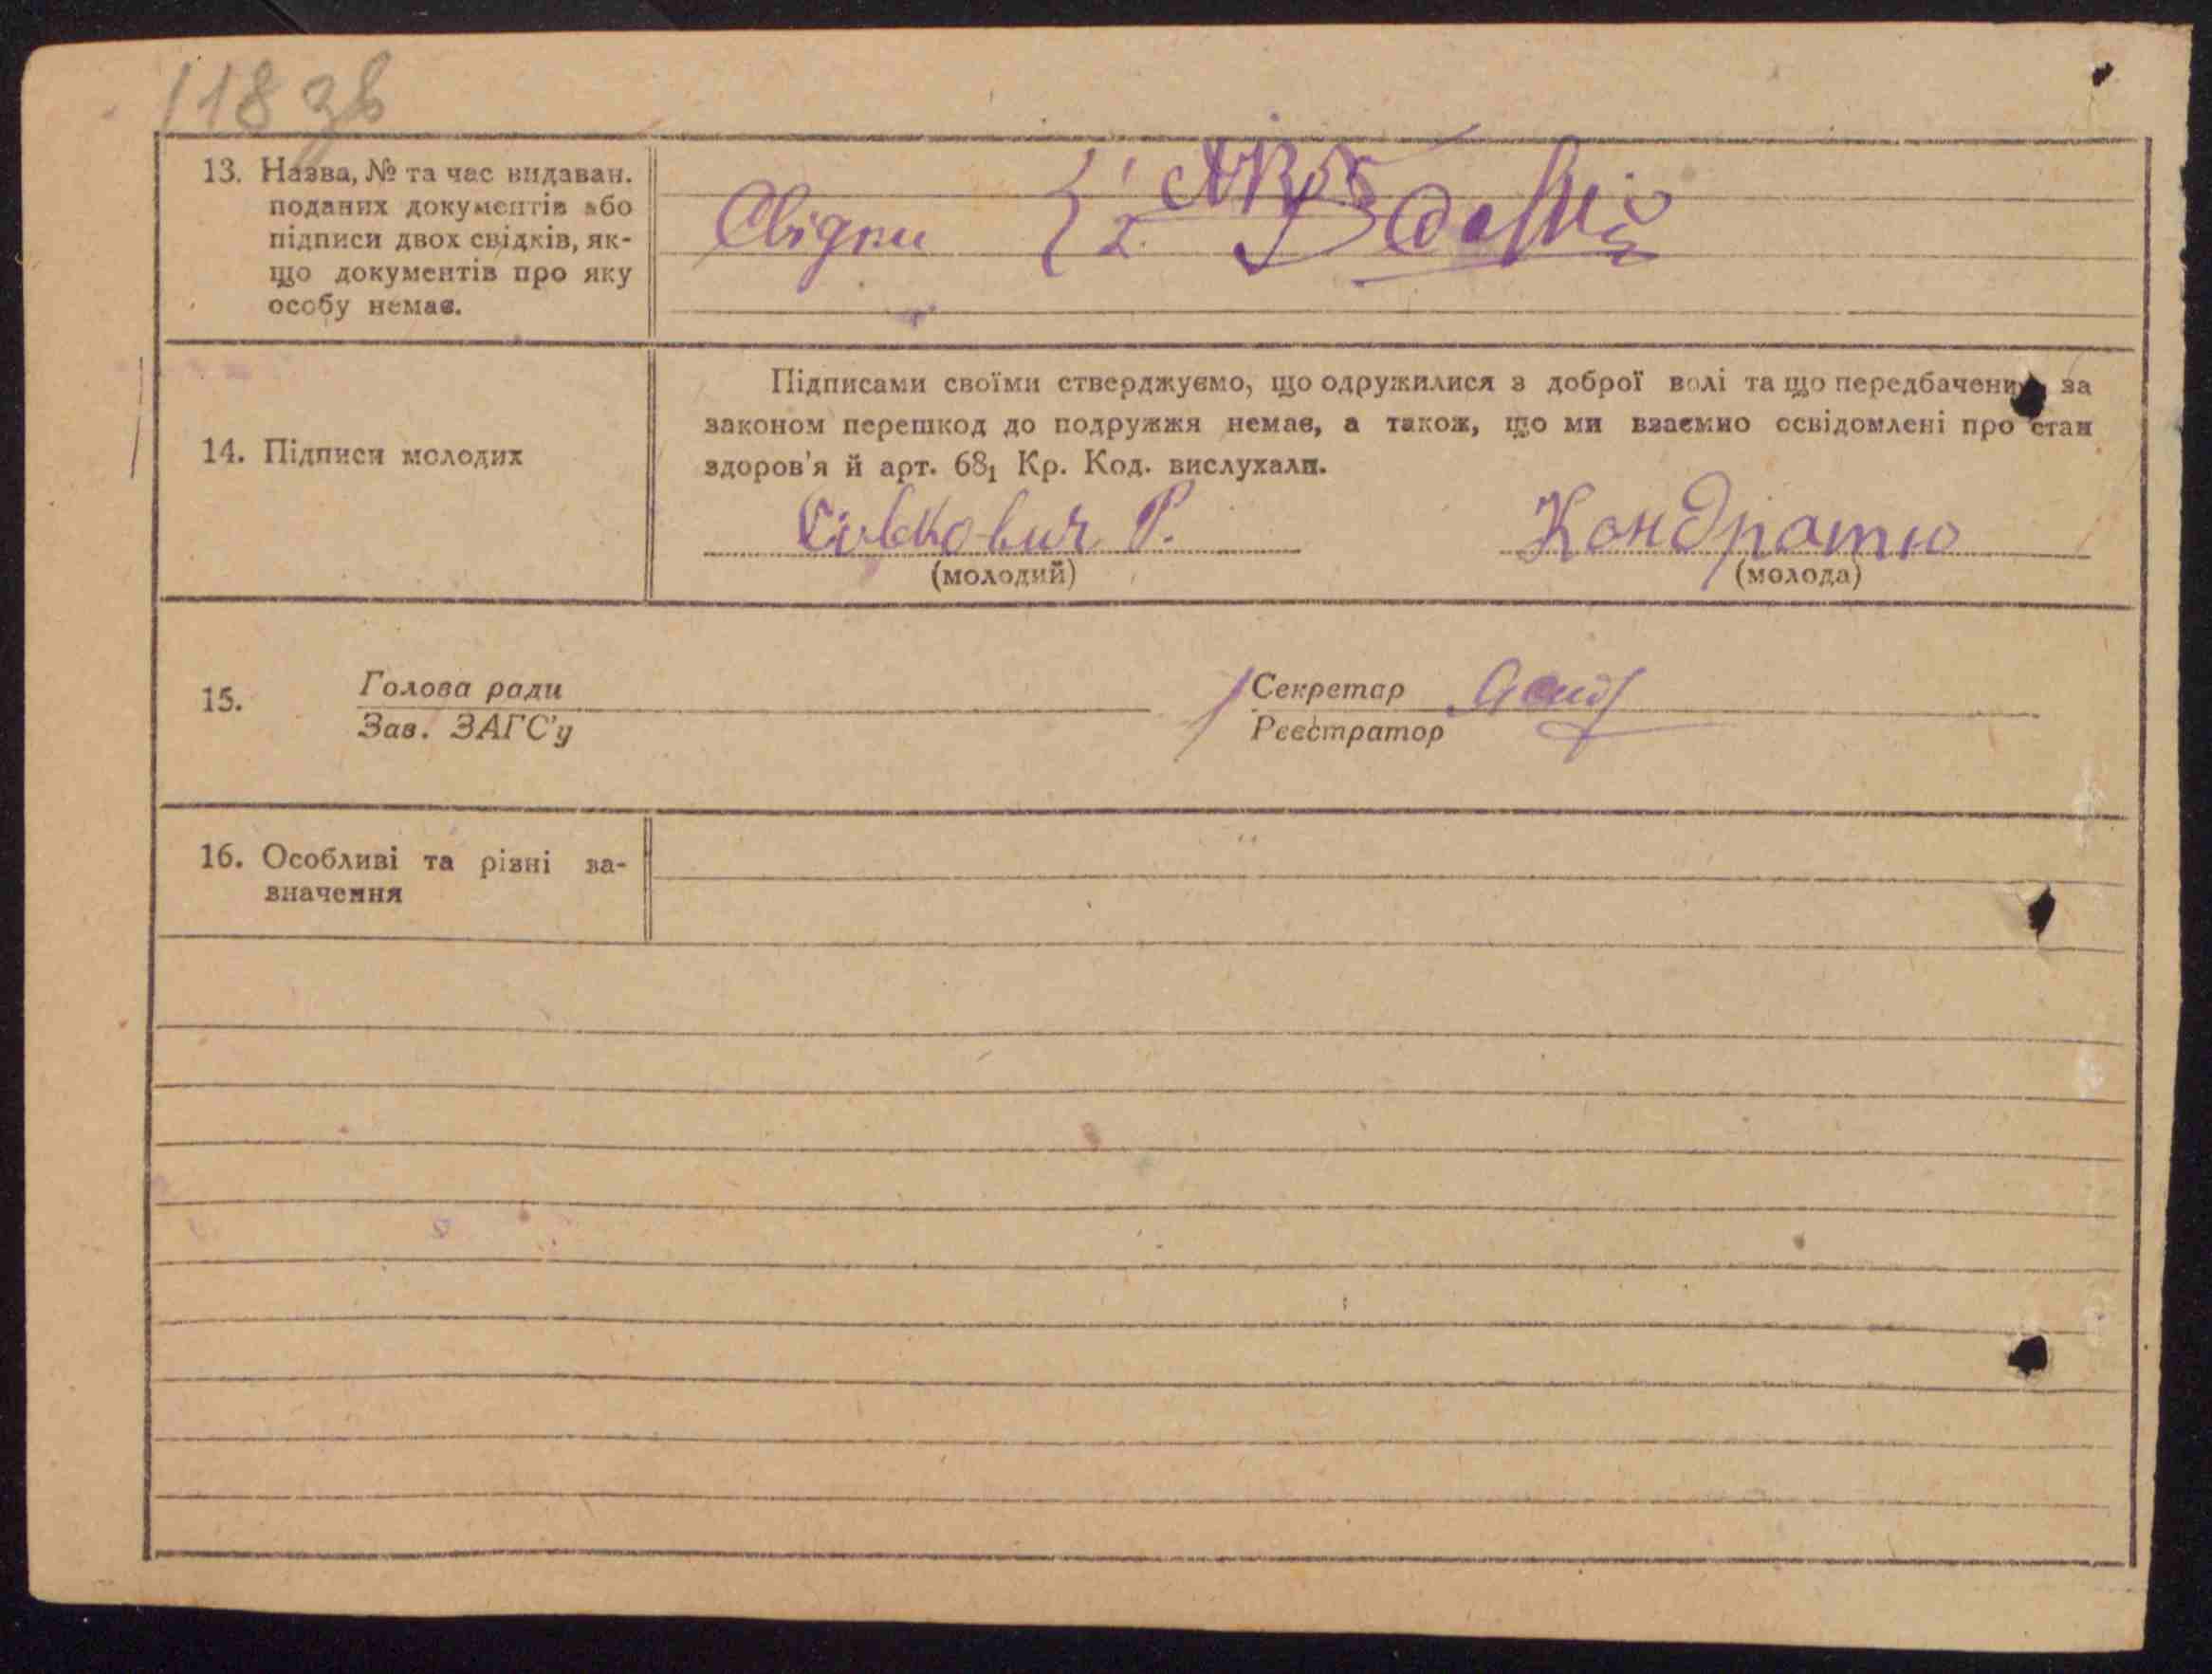 118 зв
13. Назва, № та час видаван.
поданих документів або
підписи двох свідків, як-
що документів про яку
особу немає.
Свідки { 1
2.
Підписами своїми стверджуємо, що одружилися з доброї волі та що передбачених за
законом перешкод до подружжя немає, а також, що ми взаємно освідомлені про стан
здоров'я й арт. 68₁ Кр. Код. вислухали.
14. Підписи молодих
Сівкович Р. Кондратю
(молодий) (молода)
15. Голова ради Секретар
Зав. ЗАГС'у Реєстратор
16. Особливі та різні за-
значення